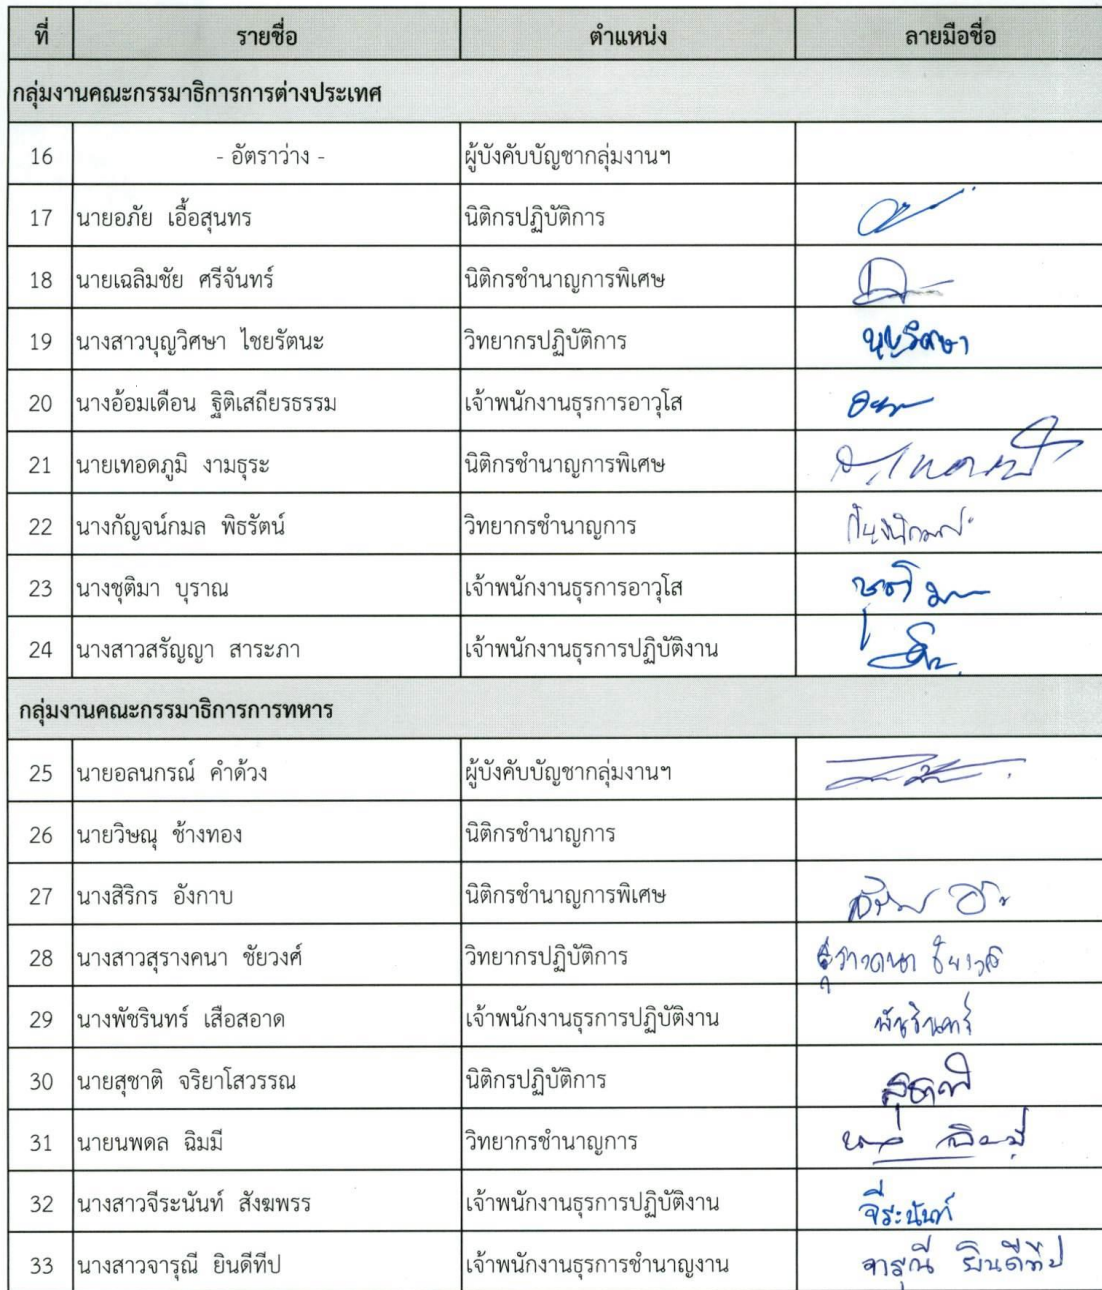 ที่ รายชื่อ ตำแหน่ง ลายมือชื่อ
กลุ่มงานคณะกรรมาธิการการต่างประเทศ
16 - อัตราว่าง - ผู้บังคับบัญชากลุ่มงานฯ
17 นายอภัย เอื้อสุนทร นิติกรปฏิบัติการ
18 นายเฉลิมชัย ศรีจันทร์ นิติกรชำนาญการพิเศษ
19 นางสาวบุญวิศษา ไชยรัตนะ วิทยากรปฏิบัติการ
20 นางอ้อมเดือน ฐิติเสถียรธรรม เจ้าพนักงานธุรการอาวุโส
21 นายเทอดภูมิ งามธุระ นิติกรชำนาญการพิเศษ
22 นางกัญจน์กมล พิธรัตน์ วิทยากรชำนาญการ
23 นางชุติมา บุราณ เจ้าพนักงานธุรการอาวุโส ชุติมา
24 นางสาวสรัญญา สาระภา เจ้าพนักงานธุรการปฏิบัติงาน
กลุ่มงานคณะกรรมาธิการการทหาร
25 นายอลนกรณ์ คำด้วง ผู้บังคับบัญชากลุ่มงานฯ
26 นายวิษณุ ช้างทอง นิติกรชำนาญการ
27 นางสิริกร อังกาบ นิติกรชำนาญการพิเศษ
28 นางสาวสุรางคนา ชัยวงศ์ วิทยากรปฏิบัติการ สุรางคนา ชัยวงศ์
29 นางพัชรินทร์ เสือสอาด เจ้าพนักงานธุรการปฏิบัติงาน พัชรินทร์
30 นายสุชาติ จริยาโสวรรณ นิติกรปฏิบัติการ สุชาติ
31 นายนพดล ฉิมมี วิทยากรชำนาญการ
32 นางสาวจีระนันท์ สังฆพรร เจ้าพนักงานธุรการปฏิบัติงาน จีระนันท์
33 นางสาวจารุณี ยินดีทีป เจ้าพนักงานธุรการชำนาญงาน จารุณี ยินดีทีป